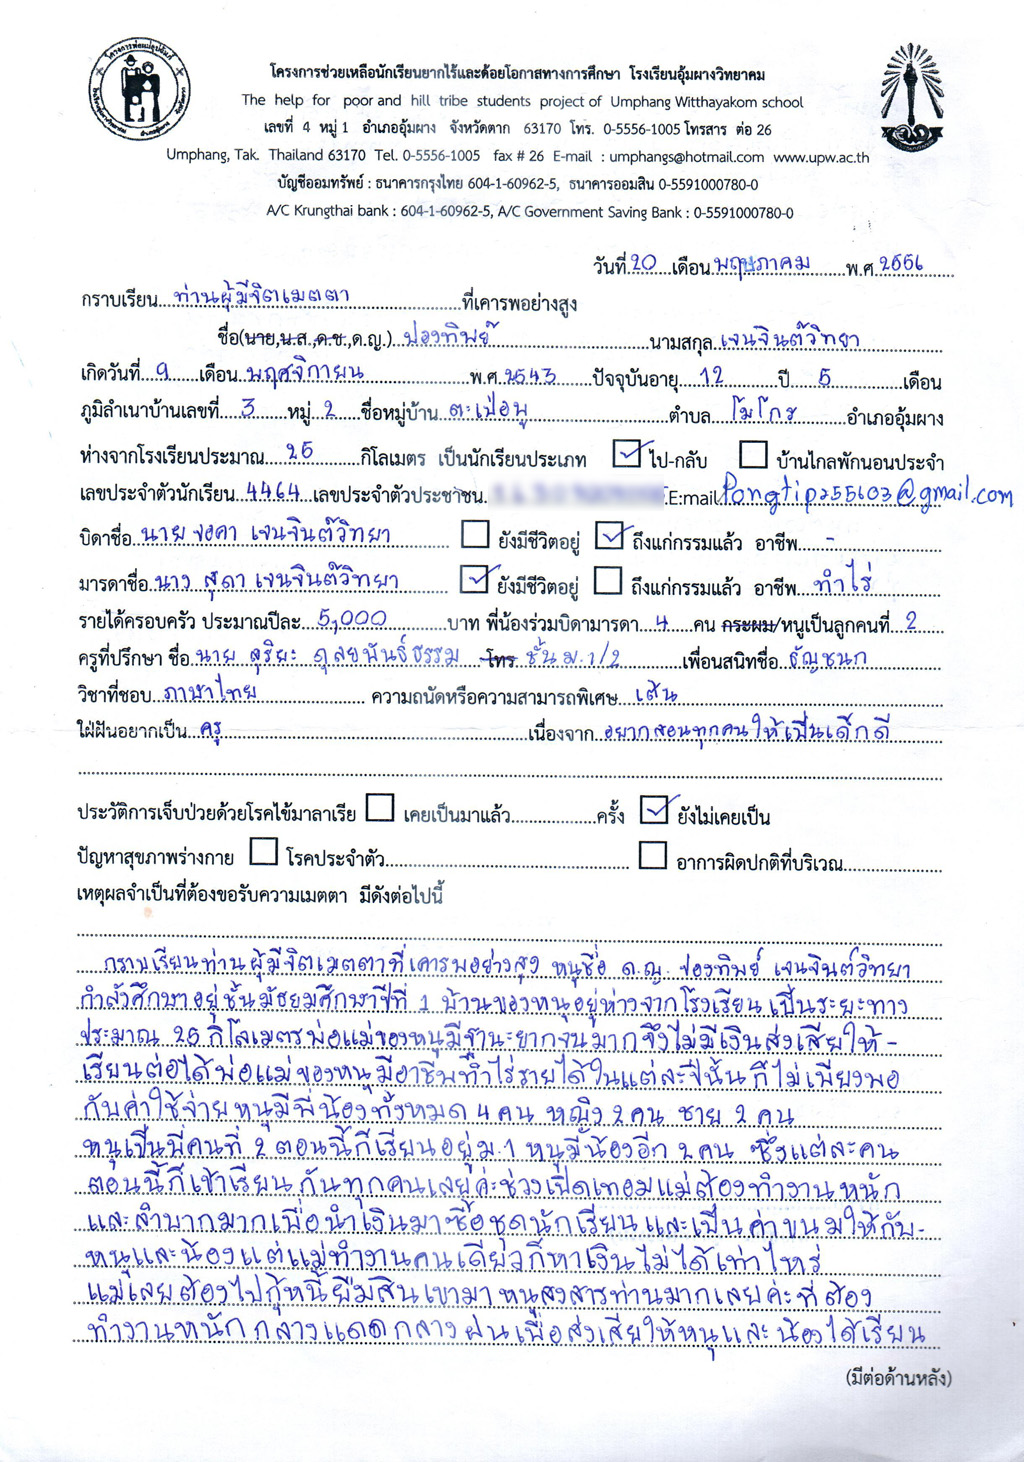 โครงการพ่อแม่อุปถัมภ์
โครงการช่วยเหลือนักเรียนยากไร้และด้อยโอกาสทางการศึกษา โรงเรียนอุ้มผางวิทยาคม
The help for poor and hill tribe students project of Umphang Witthayakom school
เลขที่ 4 หมู่ 1 อำเภออุ้มผาง จังหวัดตาก 63170 โทร. 0-5556-1005 โทรสาร ต่อ 26
Umphang, Tak. Thailand 63170 Tel. 0-5556-1005 fax # 26 E-mail : umphangs@hotmail.com www.upw.ac.th
บัญชีออมทรัพย์ : ธนาคารกรุงไทย 604-1-60962-5, ธนาคารออมสิน 0-5591000780-0
A/C Krungthai bank : 604-1-60962-5, A/C Government Saving Bank : 0-5591000780-0
วันที่ 20 เดือน พฤษภาคม พ.ศ. 2556
กราบเรียน ท่านผู้มีจิตเมตตา ที่เคารพอย่างสูง
ชื่อ(นาย,น.ส.,ด.ช.,ด.ญ.) ปองทิพย์ นามสกุล เจนจินต์วิทยา
เกิดวันที่ 9 เดือน พฤศจิกายน พ.ศ. 2543 ปัจจุบันอายุ 12 ปี 5 เดือน
ภูมิลำเนาบ้านเลขที่ 3 หมู่ 2 ชื่อหมู่บ้าน ตะเป่อพู ตำบล โมโกร อำเภออุ้มผาง
ห่างจากโรงเรียนประมาณ 25 กิโลเมตร เป็นนักเรียนประเภท ไป-กลับ บ้านไกลพักนอนประจำ
เลขประจำตัวนักเรียน 4464 เลขประจำตัวประชาชน E:mail Pongtip255603@gmail.com
บิดาชื่อ นาย จอคา เจนจินต์วิทยา ยังมีชีวิตอยู่ ถึงแก่กรรมแล้ว อาชีพ -
มารดาชื่อ นาง สุดา เจนจินต์วิทยา ยังมีชีวิตอยู่ ถึงแก่กรรมแล้ว อาชีพ ทำไร่
รายได้ครอบครัว ประมาณปีละ 5,000 บาท พี่น้องร่วมบิดามารดา 4 คน กระผม/หนูเป็นลูกคนที่ 2
ครูที่ปรึกษา ชื่อ นาย สุริยะ ดุลยนันธ์ธรรม โทร ชั้น ม.1/2 เพื่อนสนิทชื่อ ธัญชนก
วิชาที่ชอบ ภาษาไทย ความถนัดหรือความสามารถพิเศษ เต้น
ใฝ่ฝันอยากเป็น ครู เนื่องจาก อยากสอนทุกคนให้เป็นเด็กดี
ประวัติการเจ็บป่วยด้วยโรคไข้มาลาเรีย เคยเป็นมาแล้ว ครั้ง ยังไม่เคยเป็น
ปัญหาสุขภาพร่างกาย โรคประจำตัว อาการผิดปกติที่บริเวณ
เหตุผลจำเป็นที่ต้องขอรับความเมตตา มีดังต่อไปนี้
กราบเรียนท่านผู้มีจิตเมตตาที่เคารพอย่างสูง หนูชื่อ ด.ญ. ปองทิพย์ เจนจินต์วิทยา
กำลังศึกษาอยู่ชั้นมัธยมศึกษาปีที่ 1 บ้านของหนูอยู่ห่างจากโรงเรียนเป็นระยะทาง
ประมาณ 25 กิโลเมตรพ่อแม่ของหนูมีฐานะยากจนมากจึงไม่มีเงินส่งเสียให้-
เรียนต่อได้พ่อแม่ของหนูมีอาชีพทำไร่รายได้ในแต่ละปีนั้นก็ไม่เพียงพอ
กับค่าใช้จ่ายหนูมีพี่น้องทั้งหมด 4 คน หญิง 2 คน ชาย 2 คน
หนูเป็นพี่คนที่ 2 ตอนนี้ก็เรียนอยู่ ม.1 หนูมีน้องอีก 2 คน ซึ่งแต่ละคน
ตอนนี้ก็เข้าเรียนกันทุกคนเลยค่ะช่วงเปิดเทอมแม่ต้องทำงานหนัก
และลำบากมากเพื่อนำเงินมาซื้อชุดนักเรียนและเป็นค่าขนมให้กับ-
หนูและน้องแต่แม่ทำงานคนเดียวก็หาเงินไม่ได้เท่าไหร่
แม่เลยต้องไปกู้หนี้ยืมสินเขามา หนูสงสารท่านมากเลยค่ะที่ต้อง
ทำงานหนักกลางแดดกลางฝนเพื่อส่งเสียให้หนูและน้องได้เรียน
(มีต่อด้านหลัง)